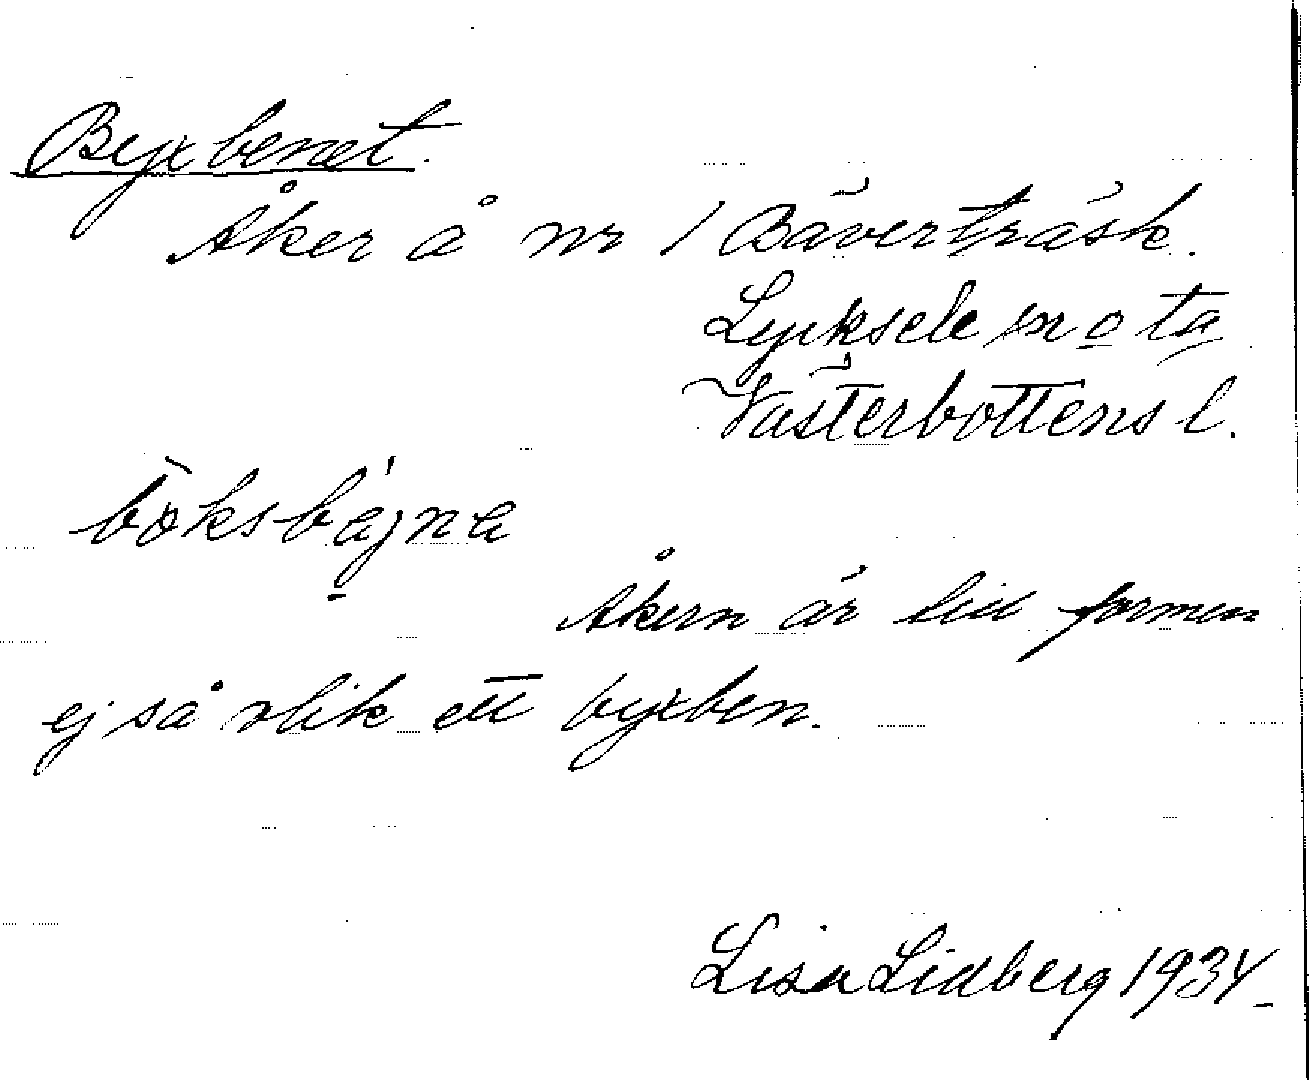 Byxbenet.
Åker å nr 1 Bäverträsk.
Lycksele sn o ta
Västerbottens l.
bòksbájna
Åkern är till formen
ej så olik ett byxben.
Lisa Lidberg 1934